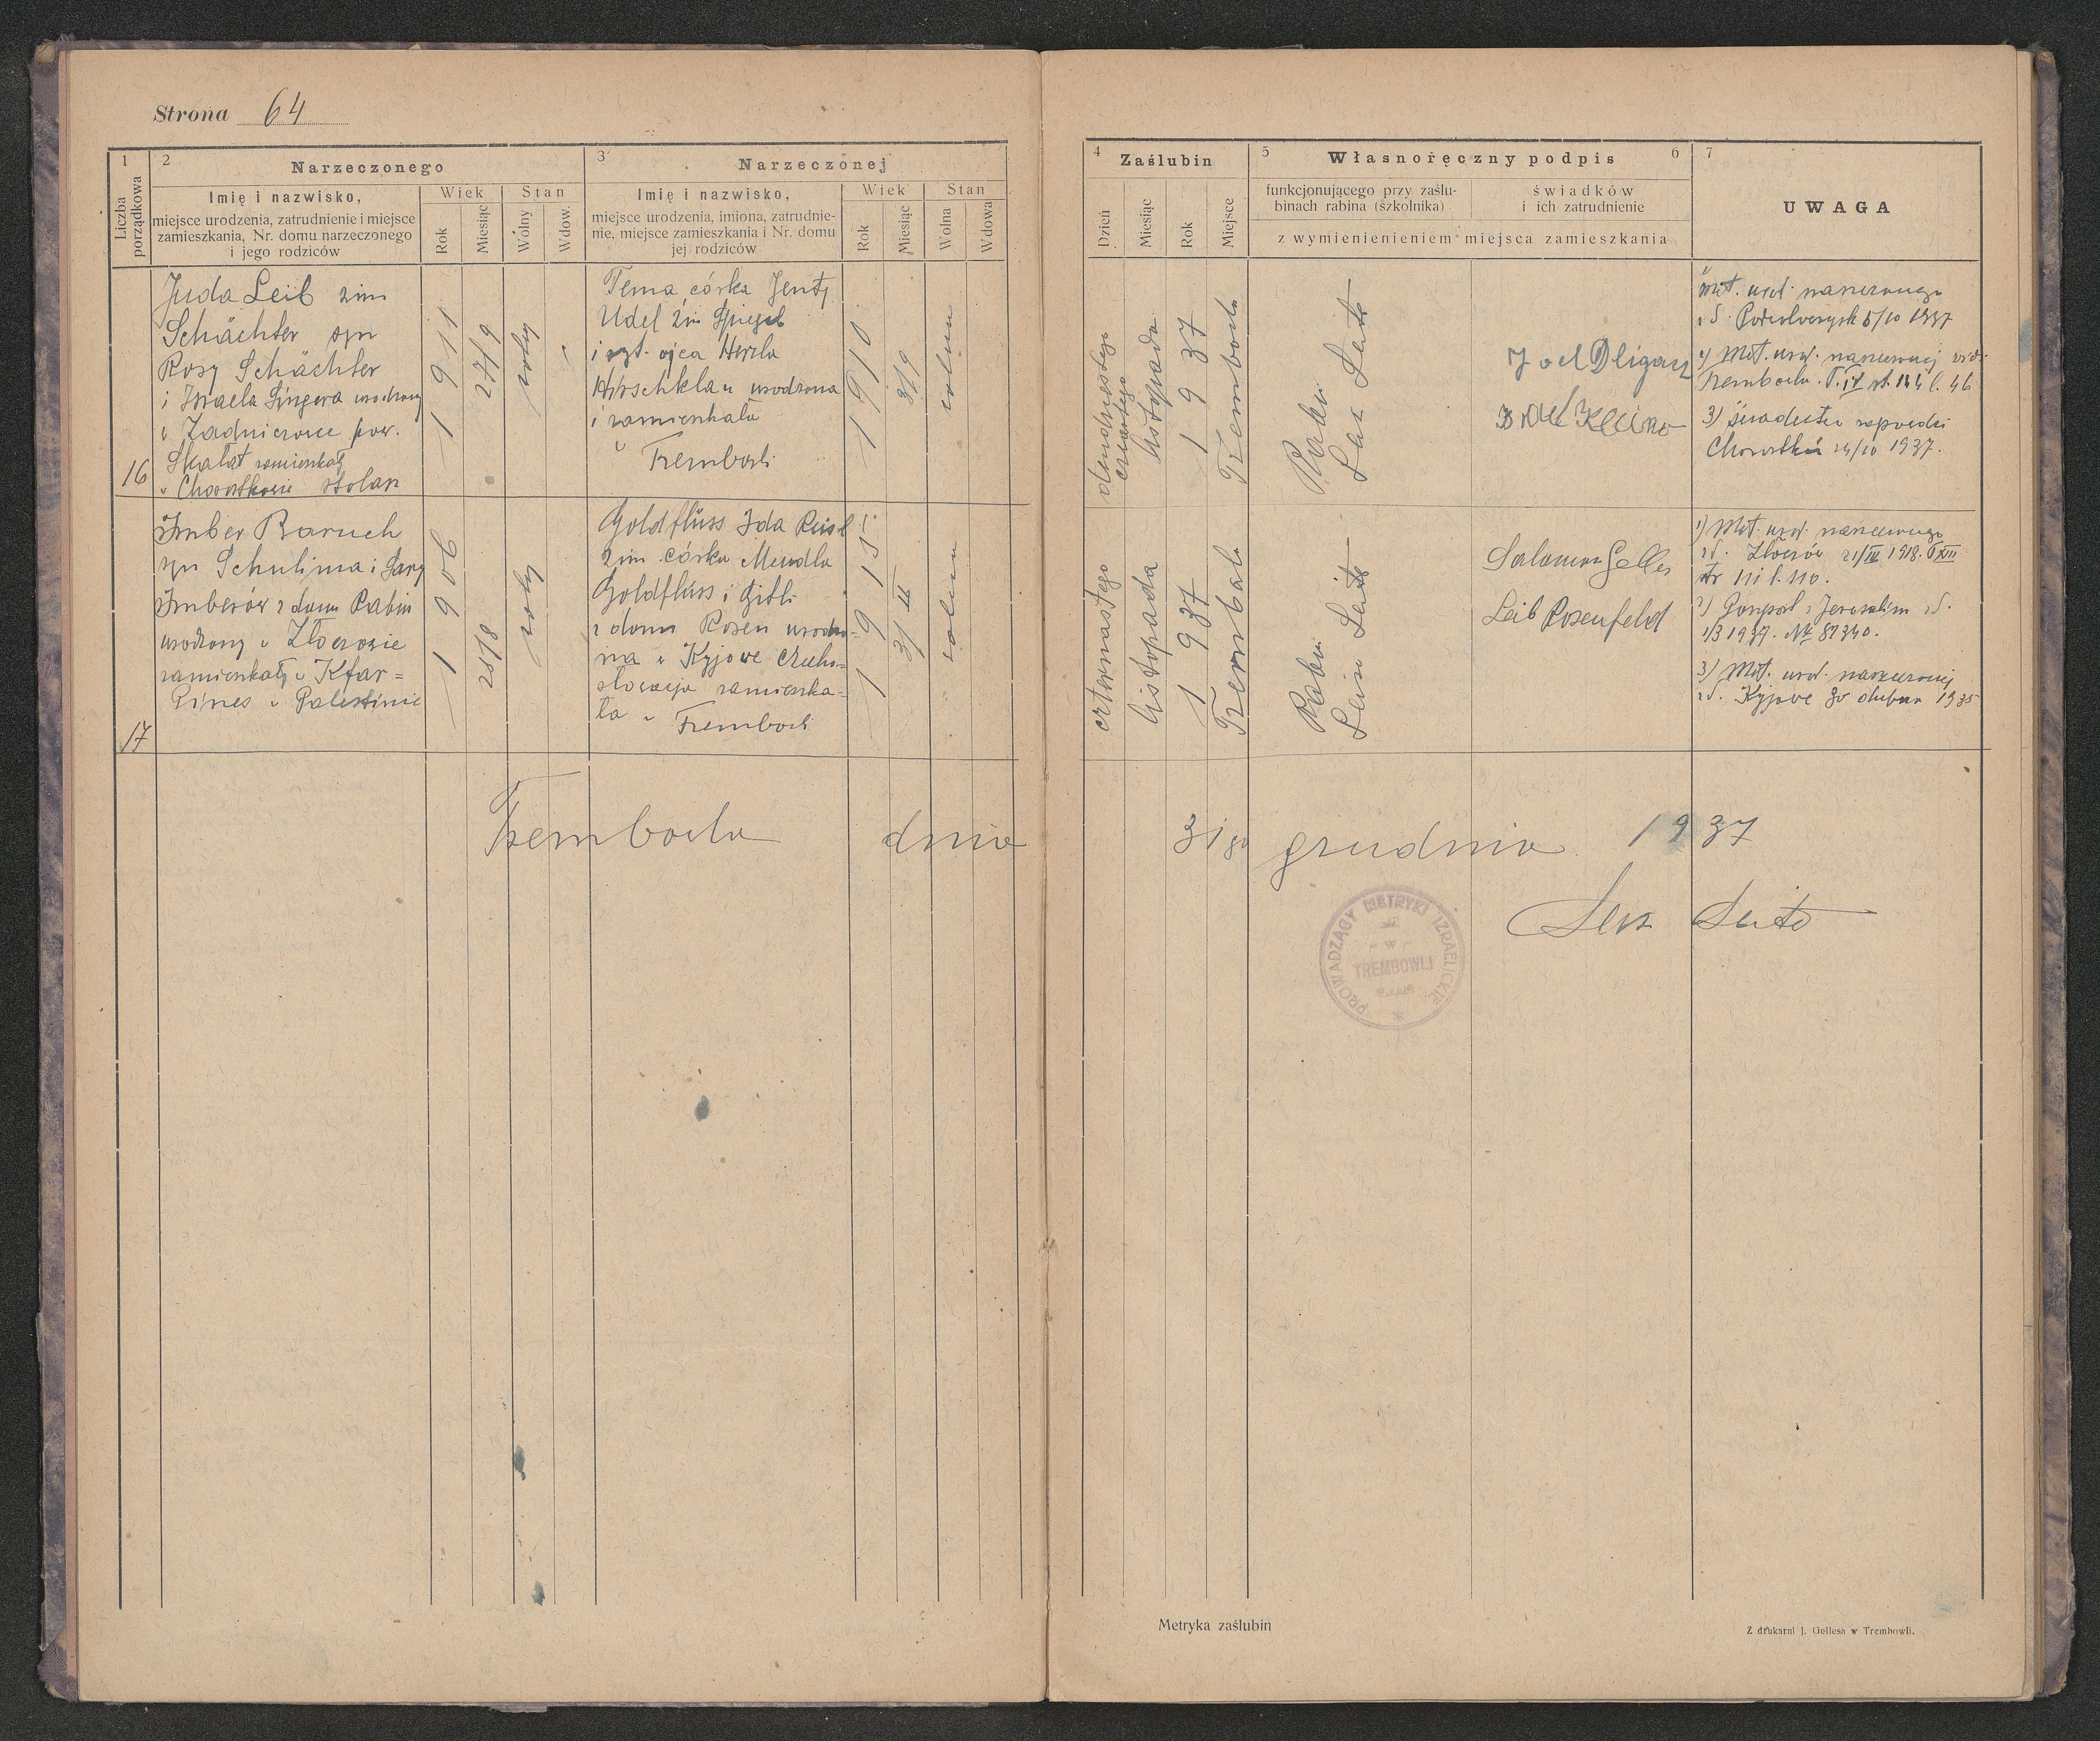 Strona 64
1
Liczba porządkowa
2
Narzeczonego
Imię i nazwisko,
miejsce urodzenia, zatrudnienie i miejsce
zamieszkania, Nr. domu narzeczonego
i jego rodziców
Wiek
Rok
Miesiąc
Stan
Wolny
Wdow.
3
Narzeczonej
Imię i nazwisko,
miejsce urodzenia, imiona, zatrudnie-
nie, miejsce zamieszkania i Nr. domu
jej rodziców
Wiek
Rok
Miesiąc
Stan
Wolna
Wdowa
4
Zaślubin
Dzień
Miesiąc
Rok
Miejsce
5
Własnoręczny podpis
6
funkcjonującego przy zaślu-
binach rabina (szkolnika)
świadków
i ich zatrudnienie
z wymienienieniem miejsca zamieszkania
7
UWAGA
16
Juda Leib 2im
Schächter syn
Rosy Schächter
i Izraela Singera urodzony
w Zadnierowce pow.
Skałat zamieszkały
w Chorostkowie stolarz
1911
27/9
wolny
Tema córka Jenty
Udel 2im Spiegel
i szt. ojca Herzla
Hirschklau urodzona
i zamieszkała
w
Trembowli
1910
3/9
wolna
dwudziestego
czwartego
listopada
1937
Trembowla
Rabin
Leis Seite
Joel Dligacz
1) Met. urod. narzeczonego
z d. Podwołoczysk 5/10 1937
2) Met. urod. narzeczonej
Trembowla
3) Świadectwo zapowiedzi
Chorostków 24/10 1937.
17
Imber Baruch
syn Schulima i Sary
Imberów z domu Rabin
urodzony w Złoczowie
zamieszkały w Kfar=
Pines w Palestinie
1906
25/8
wolny
Goldflüss Ida Reisl
2im córka Mendla
Goldflüss i Gitli
z domu Rosen urodzo=
na w Kyjowe Czecho=
słowacja zamieszka=
ła w Trembowli
1915
3/II
wolna
czternastego
listopada
1937
Trembowla
Rabin
Leis Seite
Salomon Geller
Leib Rosenfeld
1) Met. urod. narzeczonego
z d. Złoczów 21/III 1918. T XIII
str 111 l. 110.
2) Paszport z Jerozolim z d.
1/3 1937. № 82340.
3) Met. urod. narzeczonej
z d. Kyjowe 30 dubna 1935
Trembowla dnia 31go grudnia 1937
Leis Seite
PROWADZĄCY METRYKI IZRAELICKIE
W
TREMBOWLI
Metryka zaślubin
Z drukarni J. Gellesa w Trembowli.